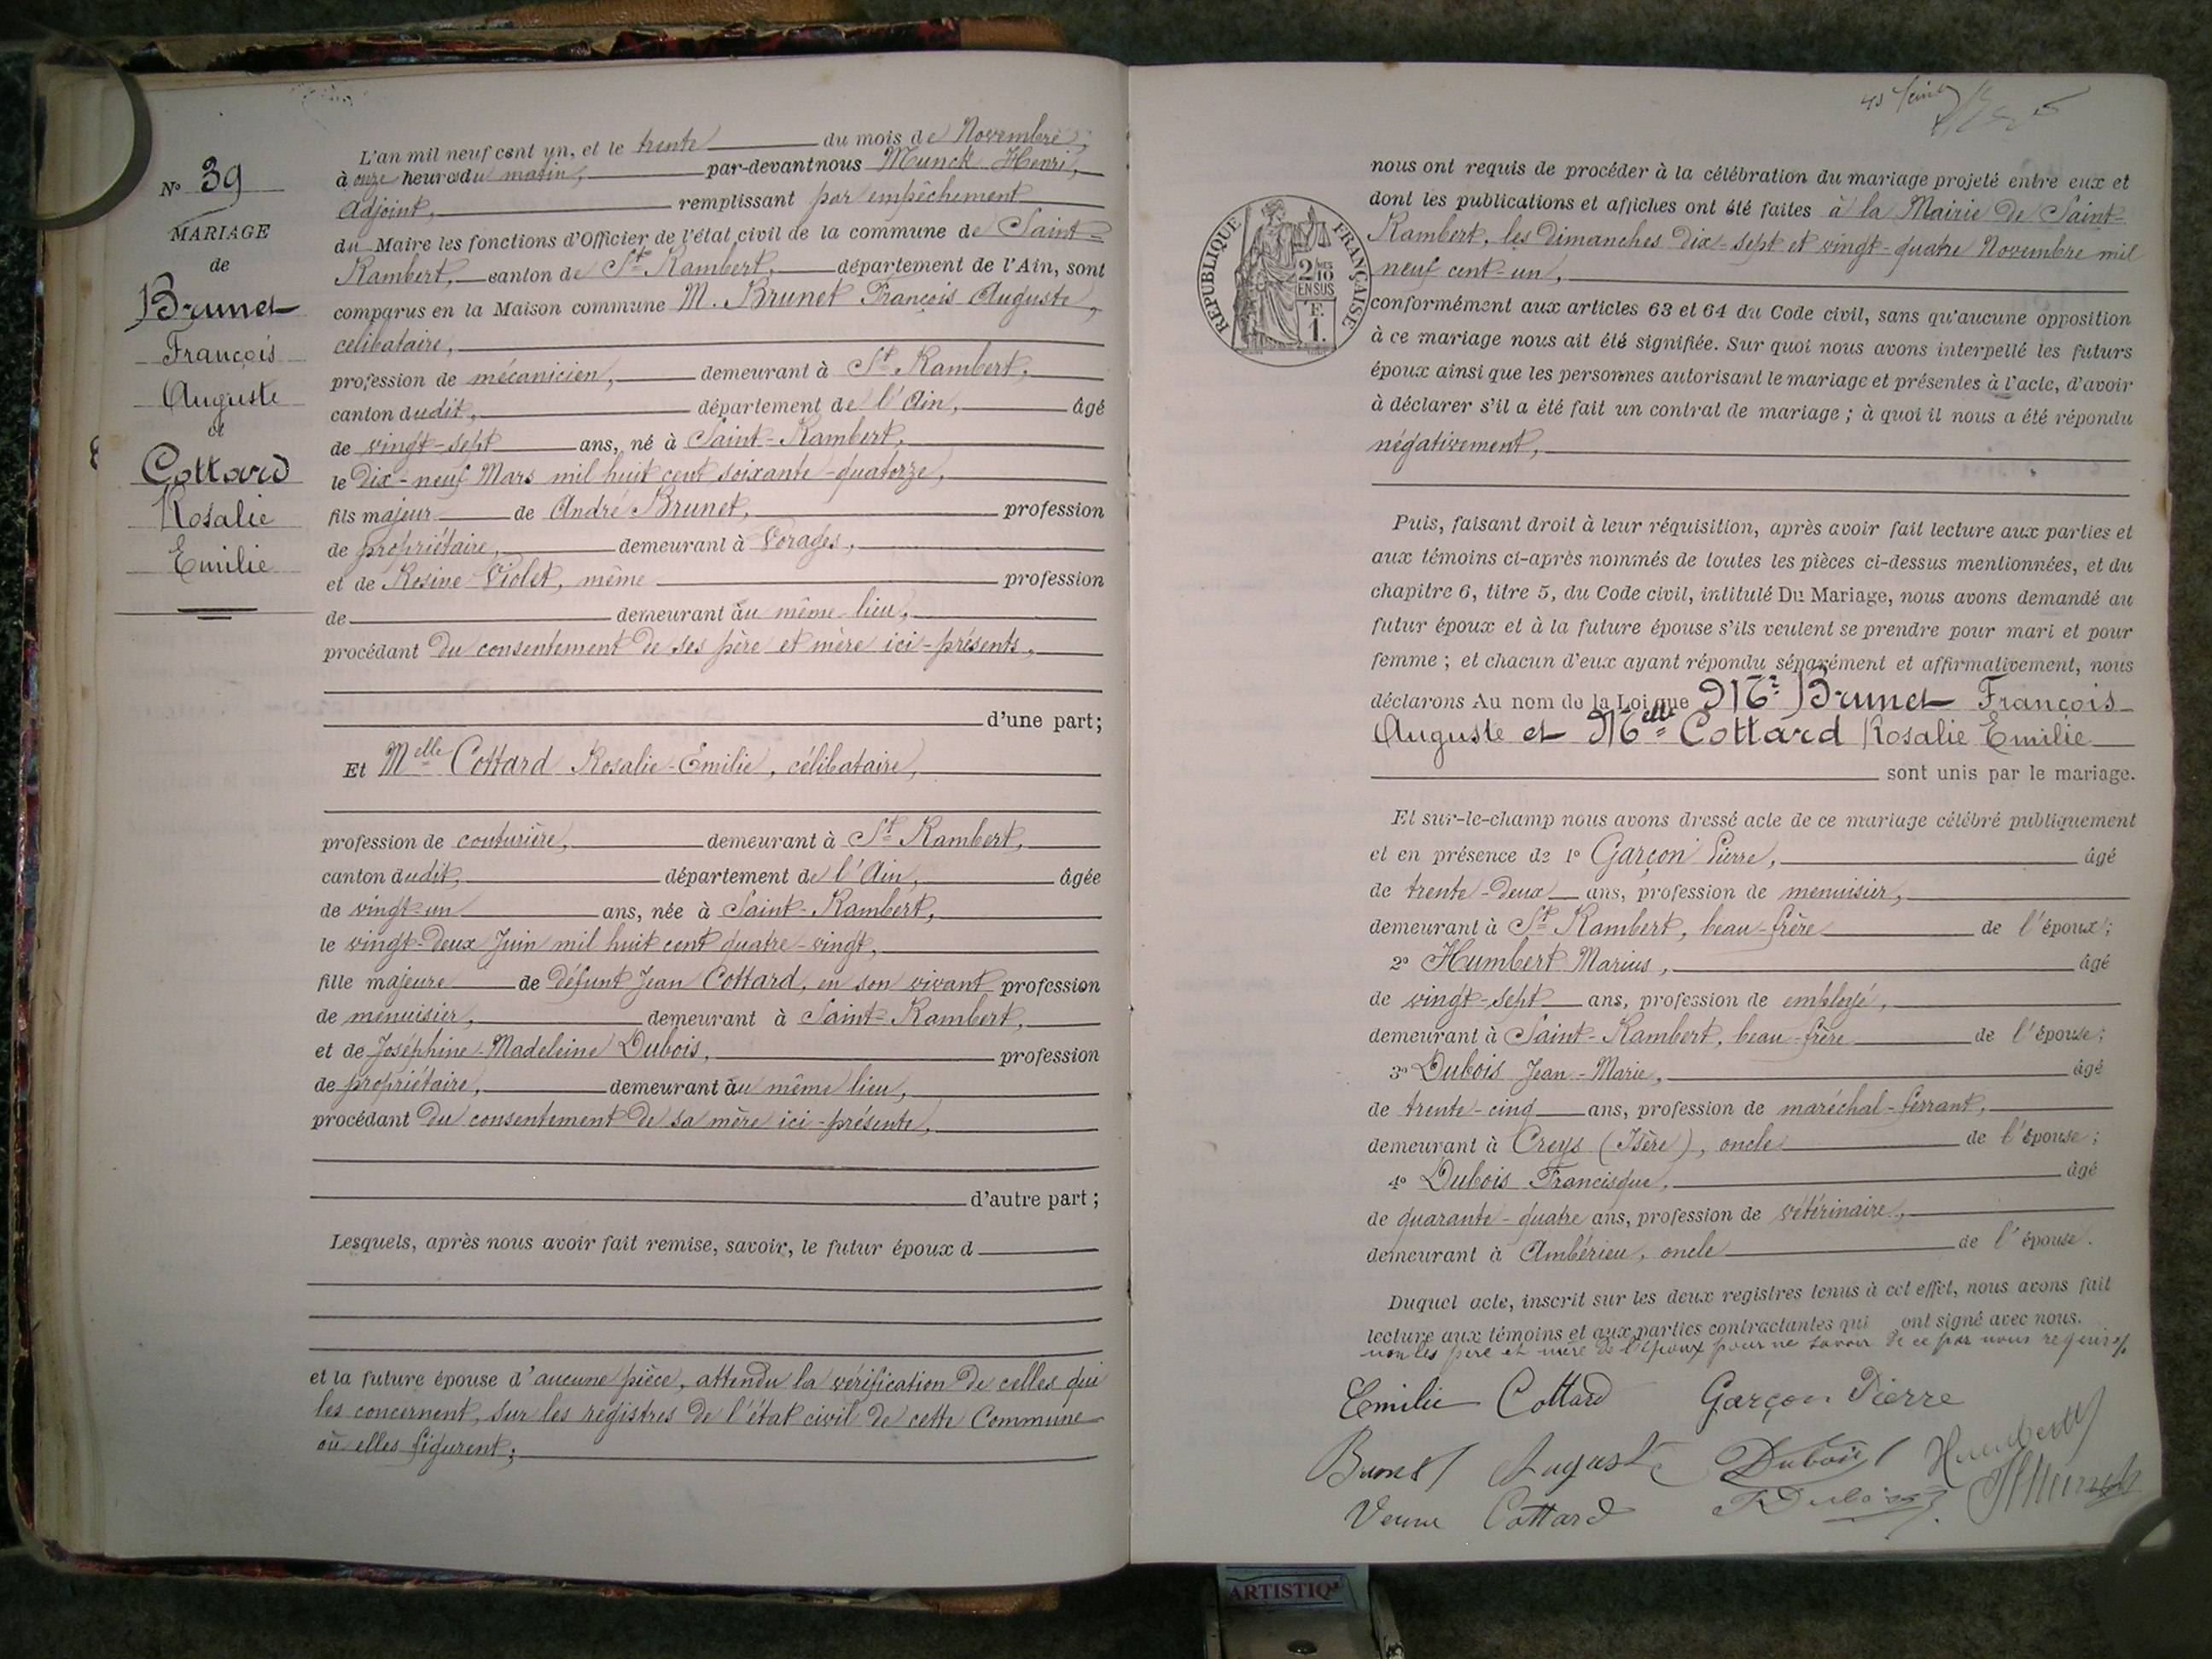 N° 39
MARIAGE
de
Brunet
François
Auguste
et
Cottard
Rosalie
Emilie
L'an mil neuf cent un, et le trente du mois de Novembre,
à onze heures du matin, par-devant nous Munck Henri,
Adjoint, remplissant par empêchement
du Maire les fonctions d'Officier de l'état civil de la commune de Saint-
Rambert, canton de St Rambert, département de l'Ain, sont
comparus en la Maison commune M. Brunet François Auguste,
célibataire,
profession de mécanicien, demeurant à St Rambert,
canton dudit, département de l'Ain, âgé
de vingt-sept ans, né à Saint-Rambert,
le Dix-neuf Mars mil huit cent soixante-quatorze,
fils majeur de André Brunet, profession
de propriétaire, demeurant à Vorages,
et de Rosine Violet, même profession
de demeurant au même lieu,
procédant du consentement de ses père et mère ici-présents,
d'une part;
Et Melle Cottard Rosalie-Emilie, célibataire,
profession de couturière, demeurant à St Rambert,
canton dudit, département de l'Ain, âgée
de vingt-un ans, née à Saint-Rambert,
le vingt-deux Juin mil huit cent quatre-vingt,
fille majeure de défunt Jean Cottard, en son vivant profession
de menuisier, demeurant à Saint-Rambert,
et de Joséphine-Madeleine Dubois, profession
de propriétaire, demeurant au même lieu,
procédant du consentement de sa mère ici-présente,
d'autre part;
Lesquels, après nous avoir fait remise, savoir, le futur époux d
et la future épouse d'aucune pièce, attendu la vérification de celles qui
les concernent, sur les registres de l'état civil de cette Commune
où elles figurent;
REPUBLIQUE FRANÇAISE
2/10
EN SUS
F.
1.
nous ont requis de procéder à la célébration du mariage projeté entre eux et
dont les publications et affiches ont été faites à la Mairie de Saint-
Rambert, les Dimanches Dix-sept et vingt-quatre Novembre mil
neuf cent-un,
conformément aux articles 63 et 64 du Code civil, sans qu'aucune opposition
à ce mariage nous ait été signifiée. Sur quoi nous avons interpellé les futurs
époux ainsi que les personnes autorisant le mariage et présentes à l'acte, d'avoir
à déclarer s'il a été fait un contrat de mariage; à quoi il nous a été répondu
négativement,
Puis, faisant droit à leur réquisition, après avoir fait lecture aux parties et
aux témoins ci-après nommés de toutes les pièces ci-dessus mentionnées, et du
chapitre 6, titre 5, du Code civil, intitulé Du Mariage, nous avons demandé au
futur époux et à la future épouse s'ils veulent se prendre pour mari et pour
femme; et chacun d'eux ayant répondu séparément et affirmativement, nous
déclarons Au nom de la Loi que Mr Brunet François
Auguste et Melle Cottard Rosalie Emilie
sont unis par le mariage.
Et sur-le-champ nous avons dressé acte de ce mariage célébré publiquement
et en présence de 1° Garçon Pierre, âgé
de trente-deux ans, profession de menuisier,
demeurant à St Rambert, beau-frère de l'époux;
2° Humbert Marius, âgé
de vingt-sept ans, profession de employé,
demeurant à Saint-Rambert, beau-frère de l'épouse;
3° Dubois Jean-Marie, âgé
de trente-cinq ans, profession de maréchal-ferrant,
demeurant à Creys (Isère), oncle de l'épouse;
4° Dubois Francisque, âgé
de quarante-quatre ans, profession de vétérinaire,
demeurant à Ambérieu, oncle de l'épouse.
Duquel acte, inscrit sur les deux registres tenus à cet effet, nous avons fait
lecture aux témoins et aux parties contractantes qui ont signé avec nous.
non les père et mère de l'époux pour ne savoir de ce par nous requis
Emilie Cottard Garçon Pierre
Brunet Auguste Dubois Humbert
Veuve Cottard Dubois HMunck
ARTISTIQ